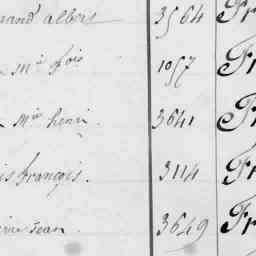 rand albert 3564 Fr
Mie foix 1057 Fr
Mie henri 3641 Fr
is françois. 3114 Fr
jean 3649 Fr